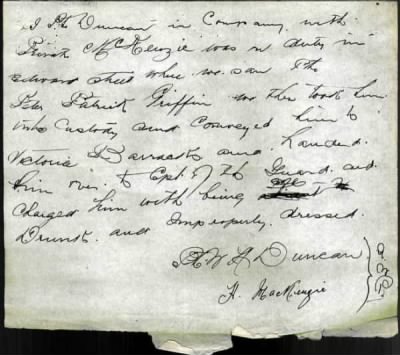 I Pte Duncan in Company with
Private McKenzie was on duty in
Edward Street when we saw the
Pte Patrick Griffin we then took him
into Custody and Conveyed him to
Victoria Barracks and handed
him over to Cpl. of the Guard and
charged him with being
Drunk and Improperly dressed.
A W A Duncan
H. MacKenzie